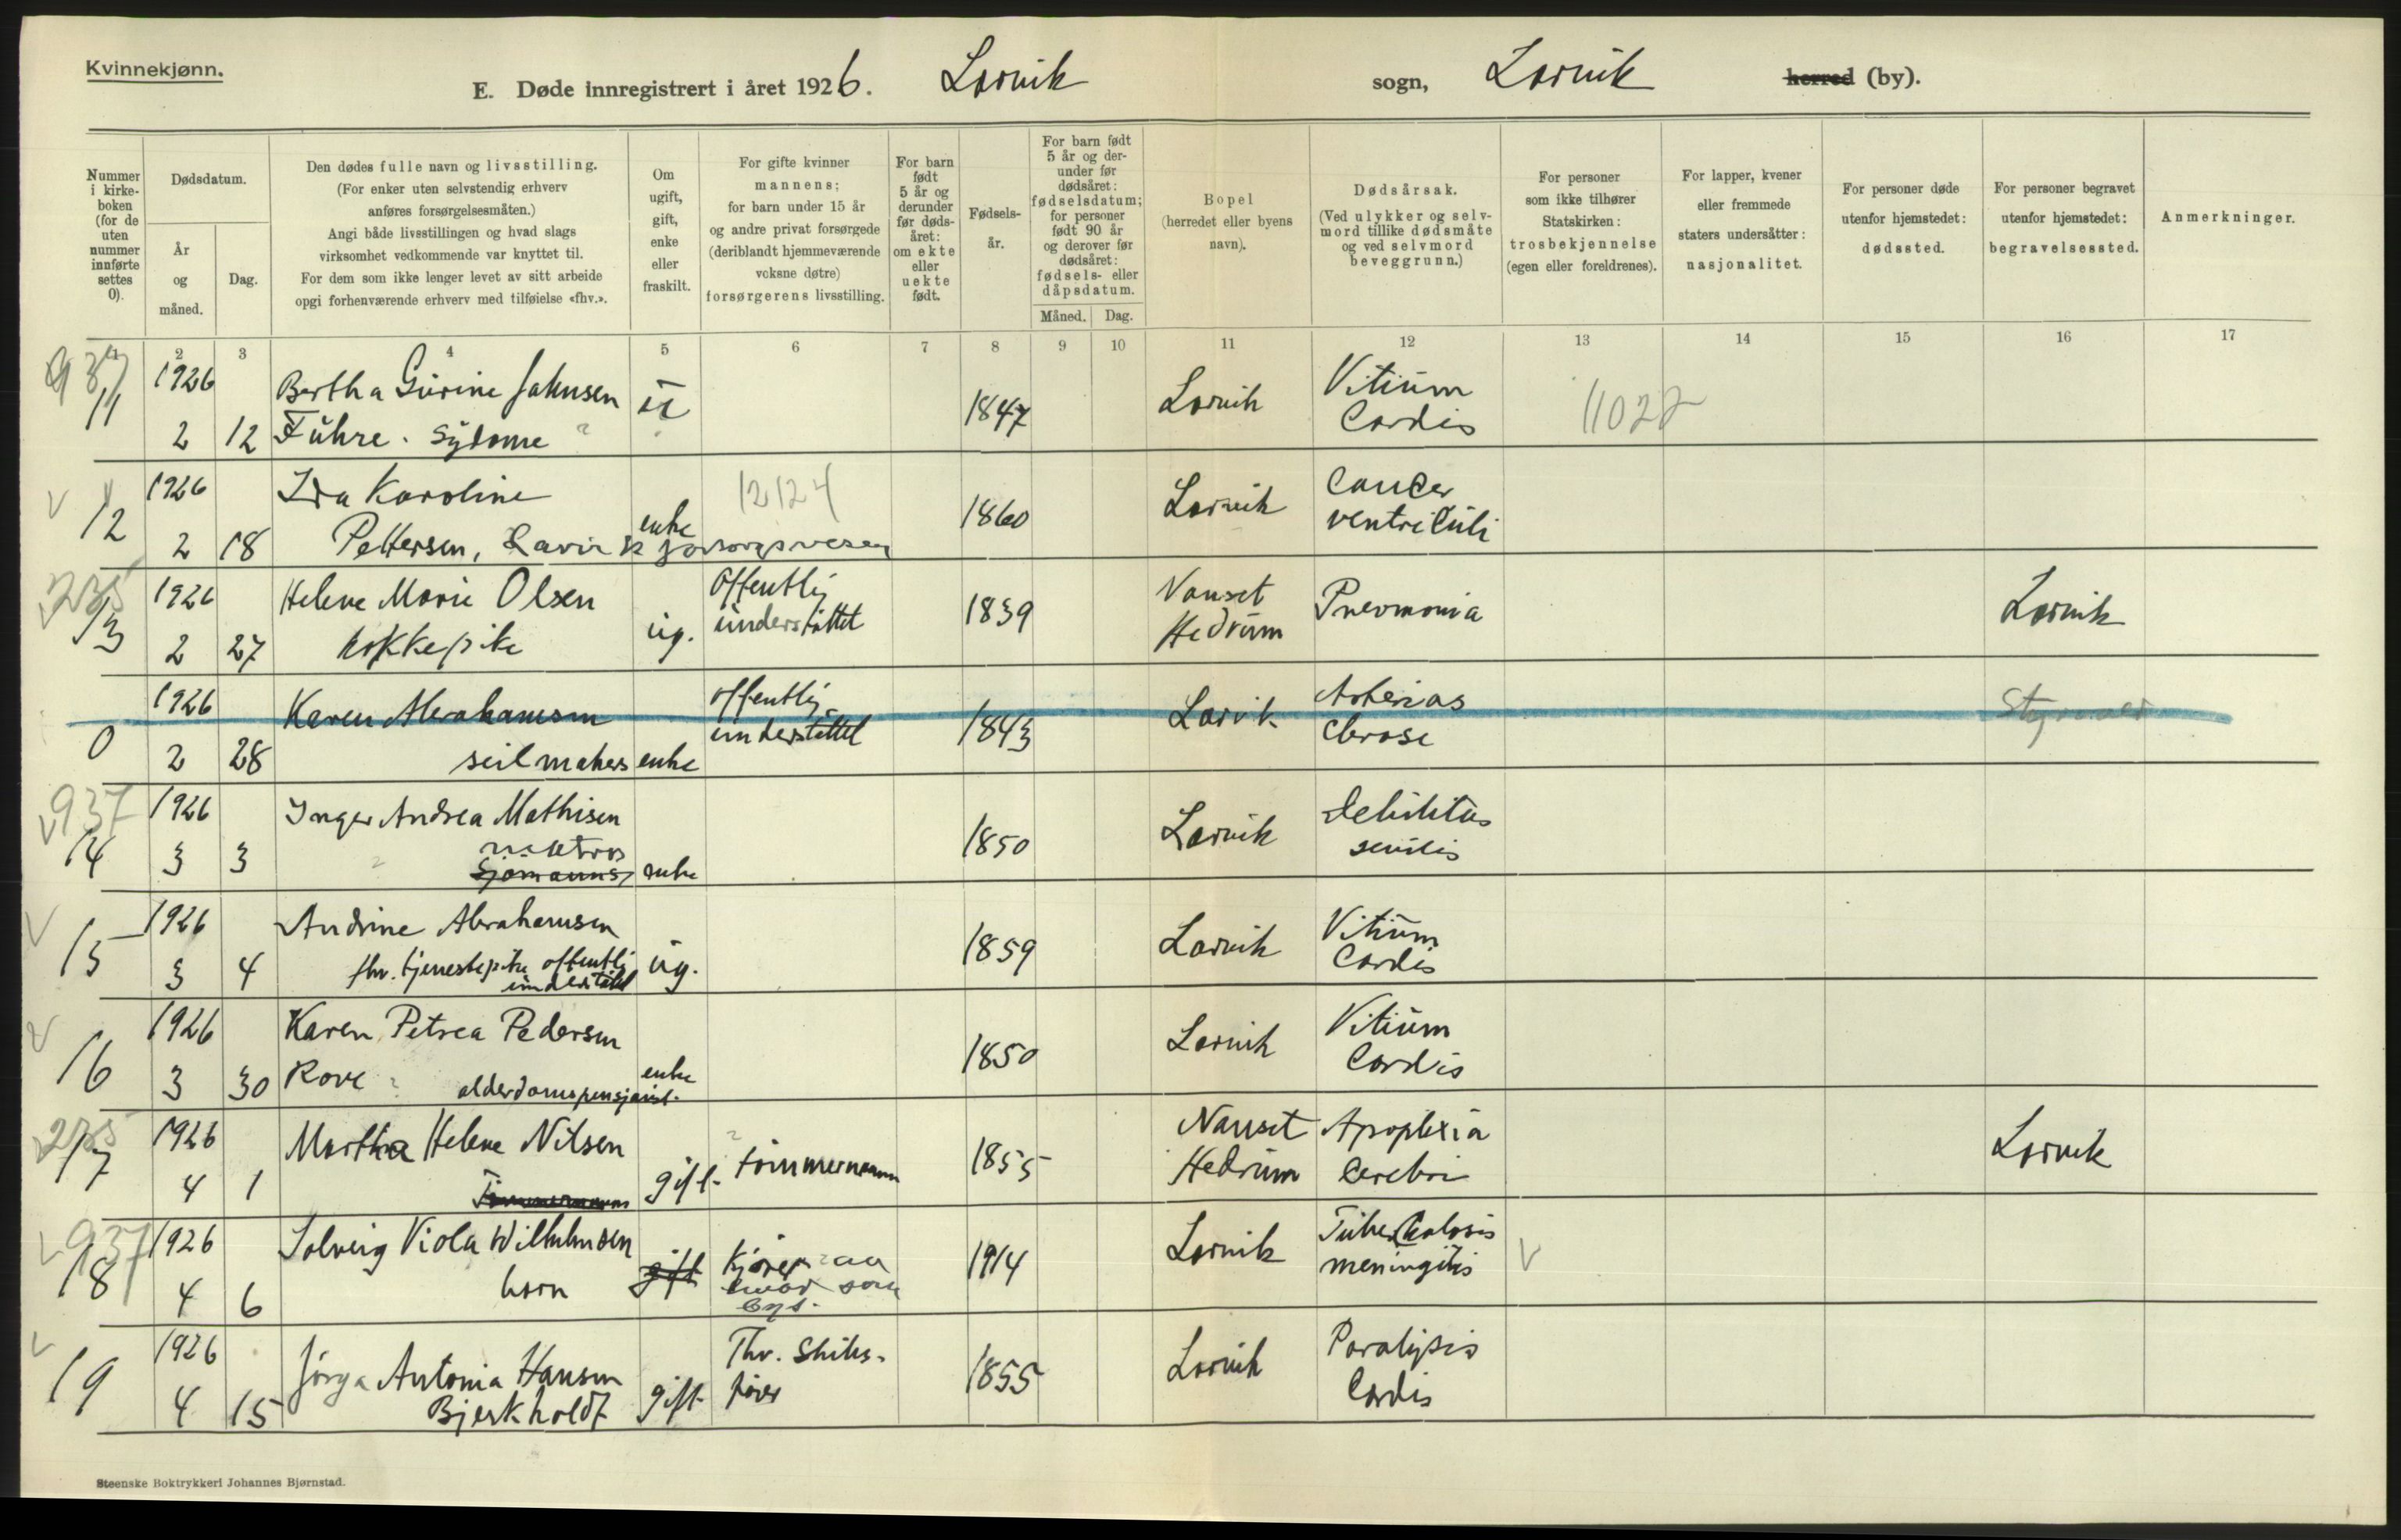 Kvinnekjønn.
E. Døde innregistrert i året 1926. Larvik sogn, Larvik herred (by).
Nummer i kirkeboken (for de uten nummer innførte settes 0).
Dødsdatum.
År og måned.
Dag.
Den dødes fulle navn og livsstilling.
(For enker uten selvstendig erhverv
anføres forsørgelsesmåten.)
Angi både livsstillingen og hvad slags
virksomhet vedkommende var knyttet til.
For dem som ikke lenger levet av sitt arbeide
opgi forhenværende erhverv med tilføielse «fhv.».
Om
ugift,
gift,
enke
eller
fraskilt.
For gifte kvinner
mannens;
for barn under 15 år
og andre privat forsørgede
(deriblandt hjemmeværende
voksne døtre)
forsørgerens livsstilling.
For barn
født
5 år og
derunder
før døds-
året:
om ekte
eller
uekte
født.
Fødsels-
år.
For barn født
5 år og der-
under før
dødsåret:
fødselsdatum;
for personer
født 90 år
og derover før
dødsåret:
fødsels- eller
dåpsdatum.
Måned. Dag.
Bopel
(herredet eller byens
navn).
Dødsårsak.
(Ved ulykker og selv-
mord tillike dødsmåte
og ved selvmord
beveggrunn.)
For personer
som ikke tilhører
Statskirken:
trosbekjennelse
(egen eller foreldrenes).
For lapper, kvener
eller fremmede
staters undersåtter:
nasjonalitet.
For personer døde
utenfor hjemstedet:
dødssted.
For personer begravet
utenfor hjemstedet:
begravelsessted.
Anmerkninger.
1 2 3 4 5 6 7 8 9 10 11 12 13 14 15 16 17
937
11 1926 Bertha Gurine Jahnsen u 1847 Larvik Vitium
2 12 Fuhre. Sydame ? Cordis 11022
12 1926 Ida Karoline 12124 1860 Larvik Cancer
2 18 Pettersen, Larvik forsorgsvesen enke ventriculi
235
13 1926 Helene Marie Olsen ug. Offentlig 1839 Nanset Pneomonia Larvik
2 27 kokkepike understøttet Hedrum
0 1926 Karen Abrahamsen offentlig 1843 Larvik Arterios
2 28 seilmakers enke understøttet clerose
937
14 1926 Inger Andrea Mathisen 1850 Larvik Debilitas
3 3 matros senilis
Sjømanns enke
15 1926 Andrine Abrahamsen ug. 1859 Larvik Vitium
3 4 fhv. tjenestepike offentli Cordis
understøttet
16 1926 Karen Petrea Pedersen 1850 Larvik Vitium
3 30 Rove ? alderdomspensjonist. enke Cordis
235
17 1926 Martha Helene Nilsen gift tømmermann 1855 Nanset Apoplexia Larvik
4 1 Tømmermanns Hedrum Cerebri
937
18 1926 Solveig Viola Wilhelmsen gift Kjører 1914 Larvik Tuberkulosis
4 6 barn meningitis
19 1926 Jørga Antonia Hansen gift Fhv. Skibs- 1855 Larvik Paralysis
4 15 Bjerkholdt fører Cordis
Steenske Boktrykkeri Johannes Bjørnstad.